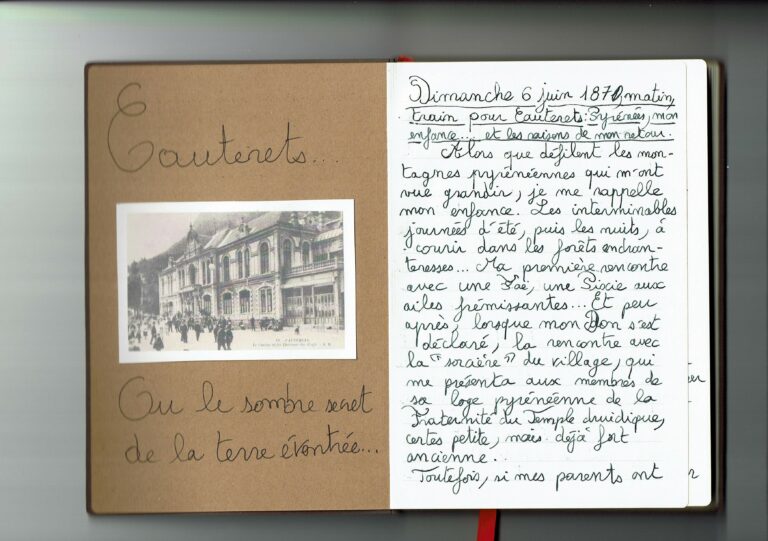 Cauterets...
CAUTERETS
Ou le sombre secret
de la terre éventrée...
Dimanche 6 juin 1872, matin,
train pour Cauterets: Pyrénées, mon
enfance... et les raisons de mon retour.
Alors que défilent les mon-
tagnes pyrénéennes qui m'ont
vue grandir, je me rappelle
mon enfance. Les interminables
journées d'été, puis les nuits, à
courir dans les forêts enchan-
teresses... Ma première rencontre
avec une Faë, une Pixie aux
ailes frémissantes... Et peu
après, lorsque mon Don s'est
déclaré, la rencontre avec
la "sorcière" du village, qui
me présenta aux membres de
sa loge pyrénéenne de la
Fraternité du Temple druidique,
certes petite, mais déjà fort
ancienne.
Toutefois, si mes parents ont